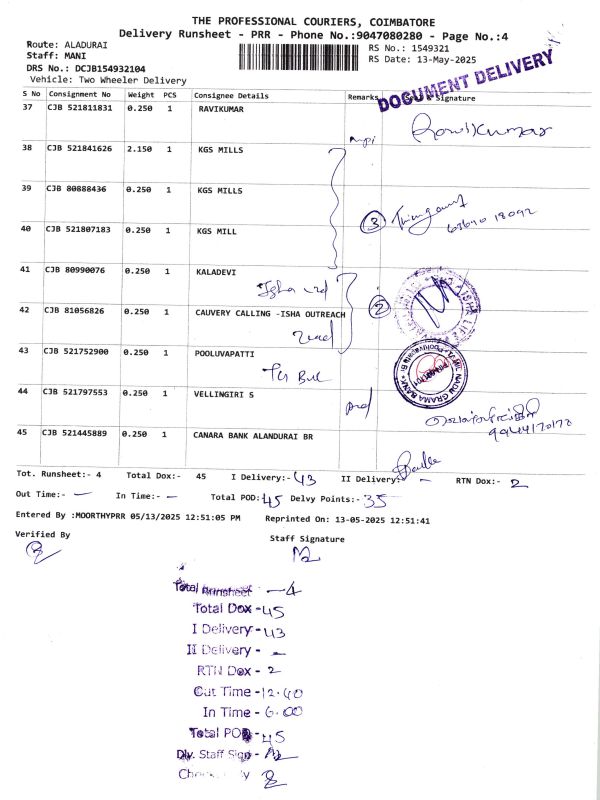 THE PROFESSIONAL COURIERS, COIMBATORE
Delivery Runsheet - PRR - Phone No.:9047080280 - Page No.:4
Route: ALADURAI RS No.: 1549321
Staff: MANI RS Date: 13-May-2025
DRS No.: DCJB154932104
Vehicle: Two Wheeler Delivery
DOCUMENT DELIVERY
S No Consignment No Weight PCS Consignee Details Remarks & Signature
37 CJB 521811831 0.250 1 RAVIKUMAR
RaviKumar
38 CJB 521841626 2.150 1 KGS MILLS
39 CJB 80888436 0.250 1 KGS MILLS
3
40 CJB 521807183 0.250 1 KGS MILL
41 CJB 80990076 0.250 1 KALADEVI
Isha
2
42 CJB 81056826 0.250 1 CAUVERY CALLING -ISHA OUTREACH
43 CJB 521752900 0.250 1 POOLUVAPATTI
TAMIL NADU GRAMA BANK
44 CJB 521797553 0.250 1 VELLINGIRI S
45 CJB 521445889 0.250 1 CANARA BANK ALANDURAI BR
Tot. Runsheet:- 4 Total Dox:- 45 I Delivery:- 43 II Delivery:- — RTN Dox:- 2
Out Time:- — In Time:- — Total POD:- 45 Delvy Points:- 35
Entered By :MOORTHYPRR 05/13/2025 12:51:05 PM Reprinted On: 13-05-2025 12:51:41
Verified By Staff Signature
Total Runsheet - 4
Total Dox - 45
I Delivery - 43
II Delivery - —
RTN Dox - 2
Out Time - 12.40
In Time - 6.00
Total POD - 45
Div. Staff Sign -